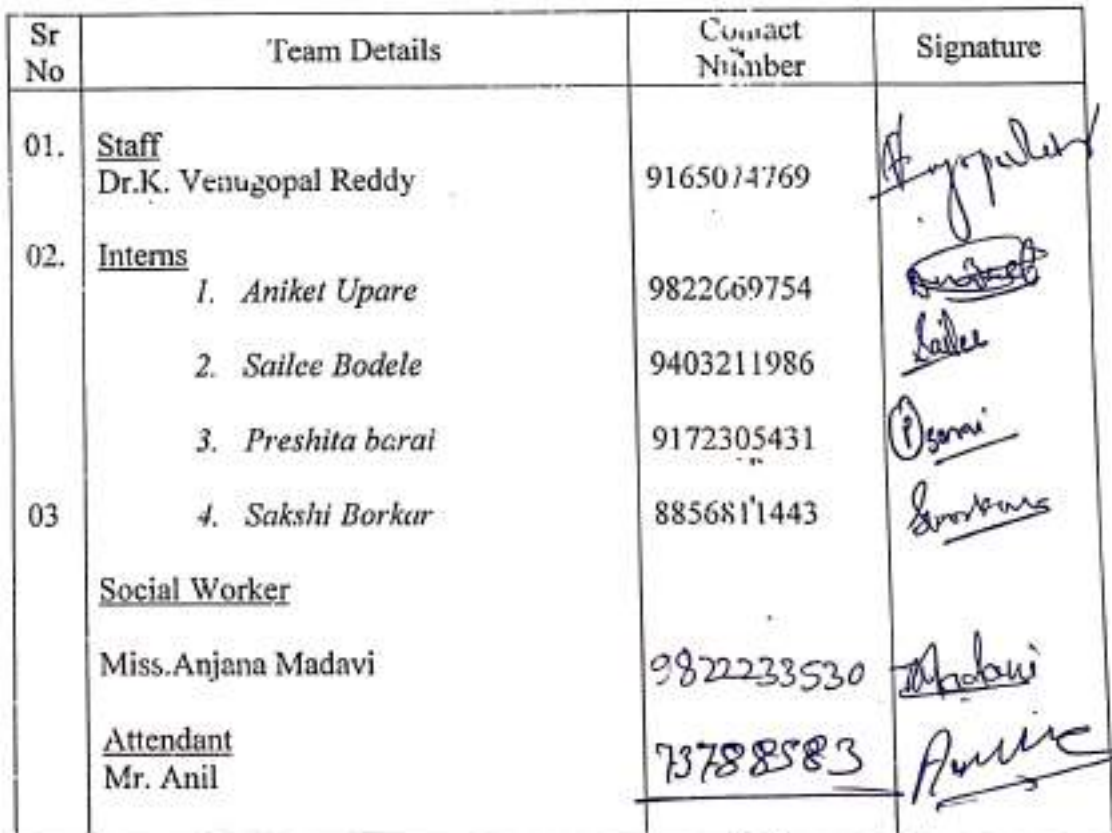 Sr No
Team Details
Contact Number
Signature
01.
Staff
Dr.K. Venugopal Reddy
9165074769
02.
Interns
1. Aniket Upare
9822669754
2. Sailee Bodele
9403211986
Sailee
3. Preshita barai
9172305431
03
4. Sakshi Borkar
8856811443
Social Worker
Miss.Anjana Madavi
9822233530
Attendant
Mr. Anil
73788583